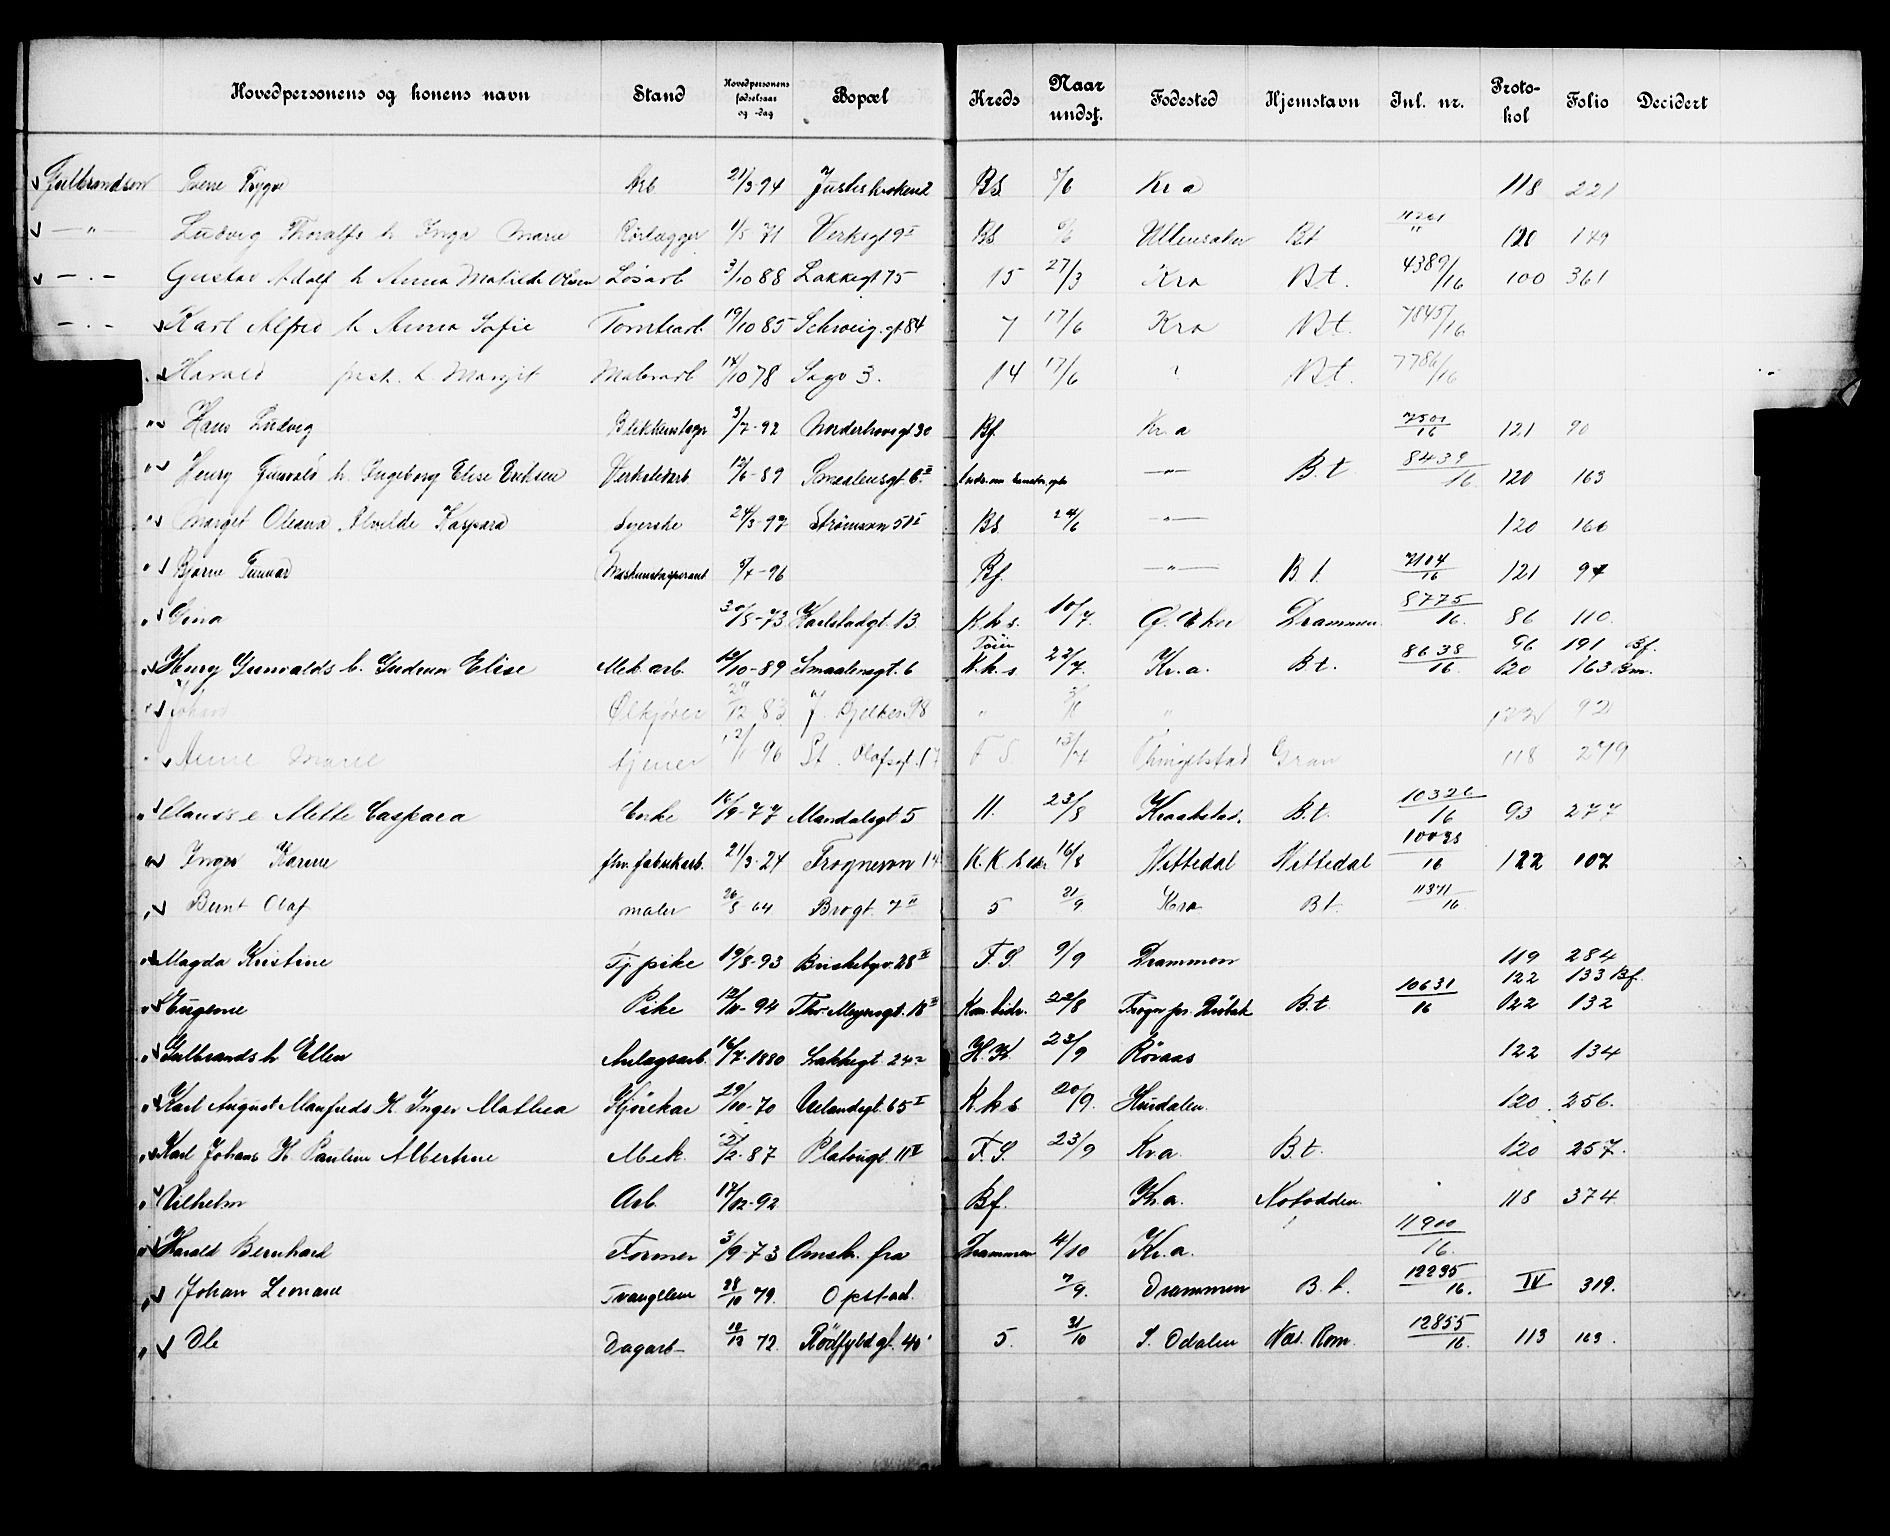 Hovedpersonens og konens navn Stand Hovedpersonens fødselsaar og -dag Bopæl Kreds Naar undst. Fødested Hjemstavn Inl. nr. Proto-kol Folio Decidert
Gulbrandsen Sverre Trygve Arb 21/3 94 BS 5/6 Kra 118 221
— " — Ludvig Thoralfs h Inga Marie Rörlægger 1/5 71 Verksgt 9 II BS 6/6 Ullensaker Bt 11201 " 120 149
— " — Gustav Adolf h Anna Mathilde Olsen Løsarb 3/10 88 Lakkegt 75 15 27/3 Kra Bt. 4389/16 100 361
— " — Karl Alfred h Anna Sofie Tomtearb. 19/10 85 Schweig.gt 84 7 17/6 Kra Bt. 7845/16
" Harald h Margit Malerarb 14/10 78 Sagv 3. 14 17/6 " Bt. 7786/16
" Hans Ludvig 3/7-92 Norderhovsgt 30 Bf. Kr.a 7501/16 121 90
" Henry Gunvalds h. Ingeborg Elise Eriksen Verkstedarb. 12/6-89 Smaalensgt. 6 II — " — B.t 8439/16 120 163
" Margit Oleana Alvilde Kaspara Syerske 24/3-97 Strømsvn 51 II BS. 24/6 — " — 120 160
" Bjarne Gunnar Maskinistaspirant 5/4-96 Bf. — " — B.t. 7104/16 121 94
" Gina 30/5-73 Karlstadgt. 13 K.k.s. 10/7. Ø. Eker Drammen 8775/16. 86 110.
" Henry Gunvalds h. Gudrun Elise Mek arb. 12/10-89 Smaalensgt. 6 Tøien K.k.s. 22/7. Kr.a. Bt. 8638/16. 96 191 Bf. 120 163 Bm.
" Johan Ølkjører 29/12 83 " " 92
" Anne Marie tjener 12/11 96 St. Olafsgt. 17 F S. 13/4 Thingelstad Gran 118 279
" Clauss e Mette Caspara Enke 16/9-77 Mandalsgt 5 11. 23/8 Kraakstad. B.t. 10326/16 93 277
" Inger Karine fhv. fabrikarb. 21/3-24 Frognervn 14 16/8 Nittedal Nittedal 10035/16 122 107
" Bernt Olaf maler 26/5 64 Brogt. 7 II 5 21/9 Kra Bt. 11371/16
" Magda Kristine Tj.pike 19/8-93 Briskebyv. 28 II F.S. 9/9 Drammen 119 284
" Eugenie Pike 12/11-94 Ths. Meyersgt. 18 II 22/8 Frogn pr. Drøbak B.t 10631/16 122 133 Bf. 122 132
" Gulbrands h Ellen Anlagsarb. 16/7-1880 Lakkegt. 24 H.K. 23/9 Röraas 122 134
" Karl August Manfreds H Inger Mathea Kjørekar 29/10-70 Uelandsgt. 65 I K k s 20/9. Hurdalen. 120. 256.
" Karl Johans H Pauline Albertine Mek. 21/2-87 Platougt. 11 IV F.S. 23/9 Kr.a. B.t. 120 257.
" Vilhelm Arb. 17/12-92 Bf. Kr.a. Notodden. 118 374
" Harald Bernhard Former 3/9-73 Omsk. fra Drammen 4/10 Kr.a. 11900/16.
" Johan Leonard 28/10 79. Opstad. 7/9. Drammen B.t. 12235/16. IV 319.
" Ole Dagarb- 18/12 72. Rödfyldgt. 40 5. 31/10 S. Odalen Nes. Rom. 12855/16. 113 163.